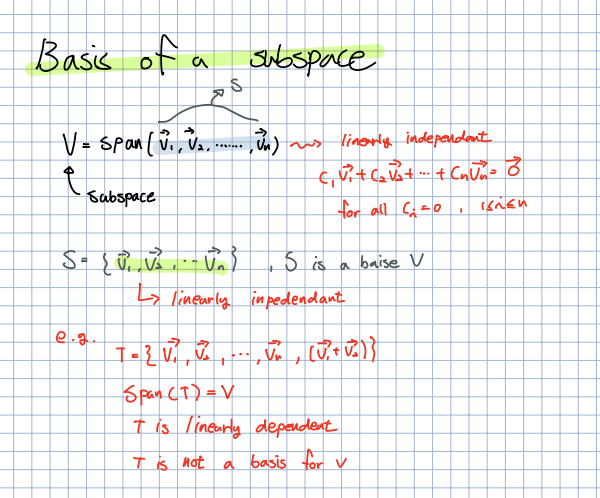 Basis of a subspace
S
V = span(v⃗₁, v⃗₂, ......., v⃗ₙ) ⇝ linearly independant
subspace
c₁v⃗₁ + c₂v⃗₂ + ... + cₙv⃗ₙ = 0⃗
for all cᵢ = 0 , 1≤i≤n
S = { v⃗₁, v⃗₂, ... v⃗ₙ } , S is a baise V
↳ linearly inpedendant
e.g.
T = { v⃗₁, v⃗₂, ..., v⃗ₙ, (v⃗₁ + v⃗₂) }
Span(T) = V
T is linearly dependent
T is not a basis for V